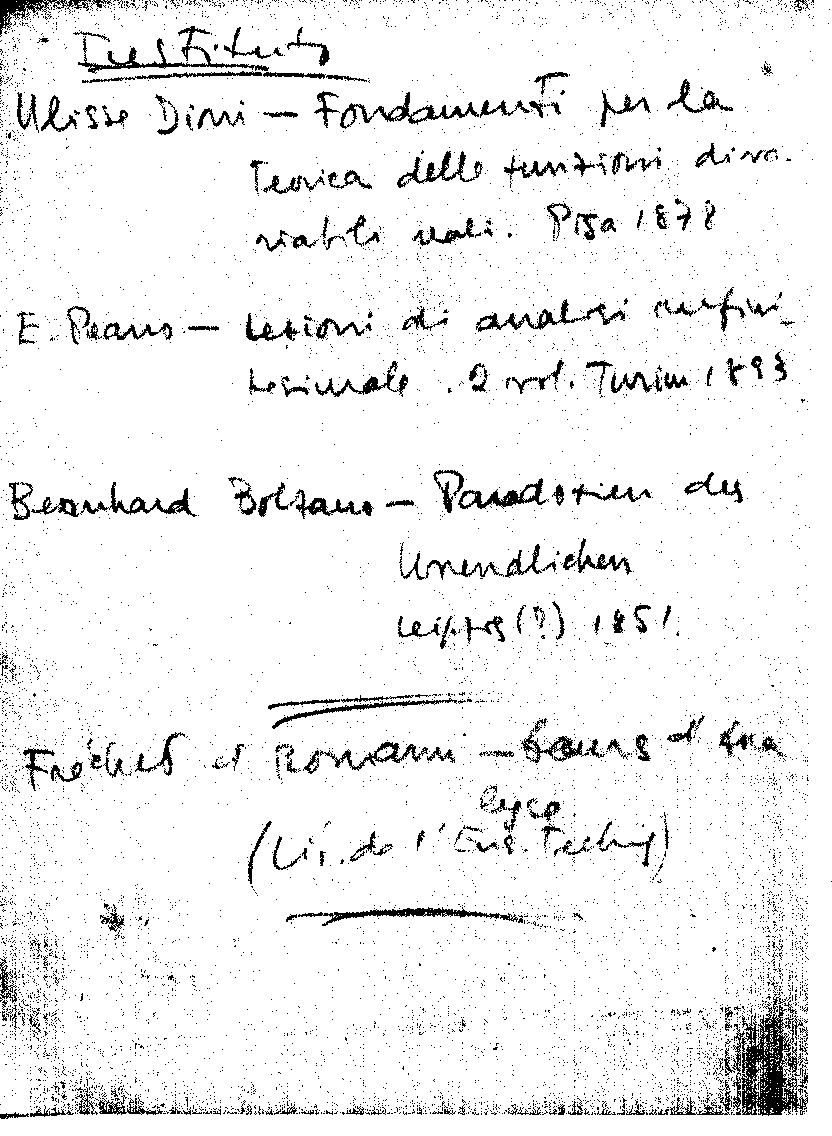 Instituto
Ulisse Dini — Fondamenti per la
Teorica delle funzioni di va-
riabili reali. Pisa 1878
E. Peano — Lezioni di analisi infini-
tesimale. 2 vol. Turim 1893
Bernhard Bolzano — Paradoxien des
Unendlichen
Leipzig (?) 1851.
Fréchet et Romann — Cours d'Ana
lyse
(Li. de l'Ens. Techn)